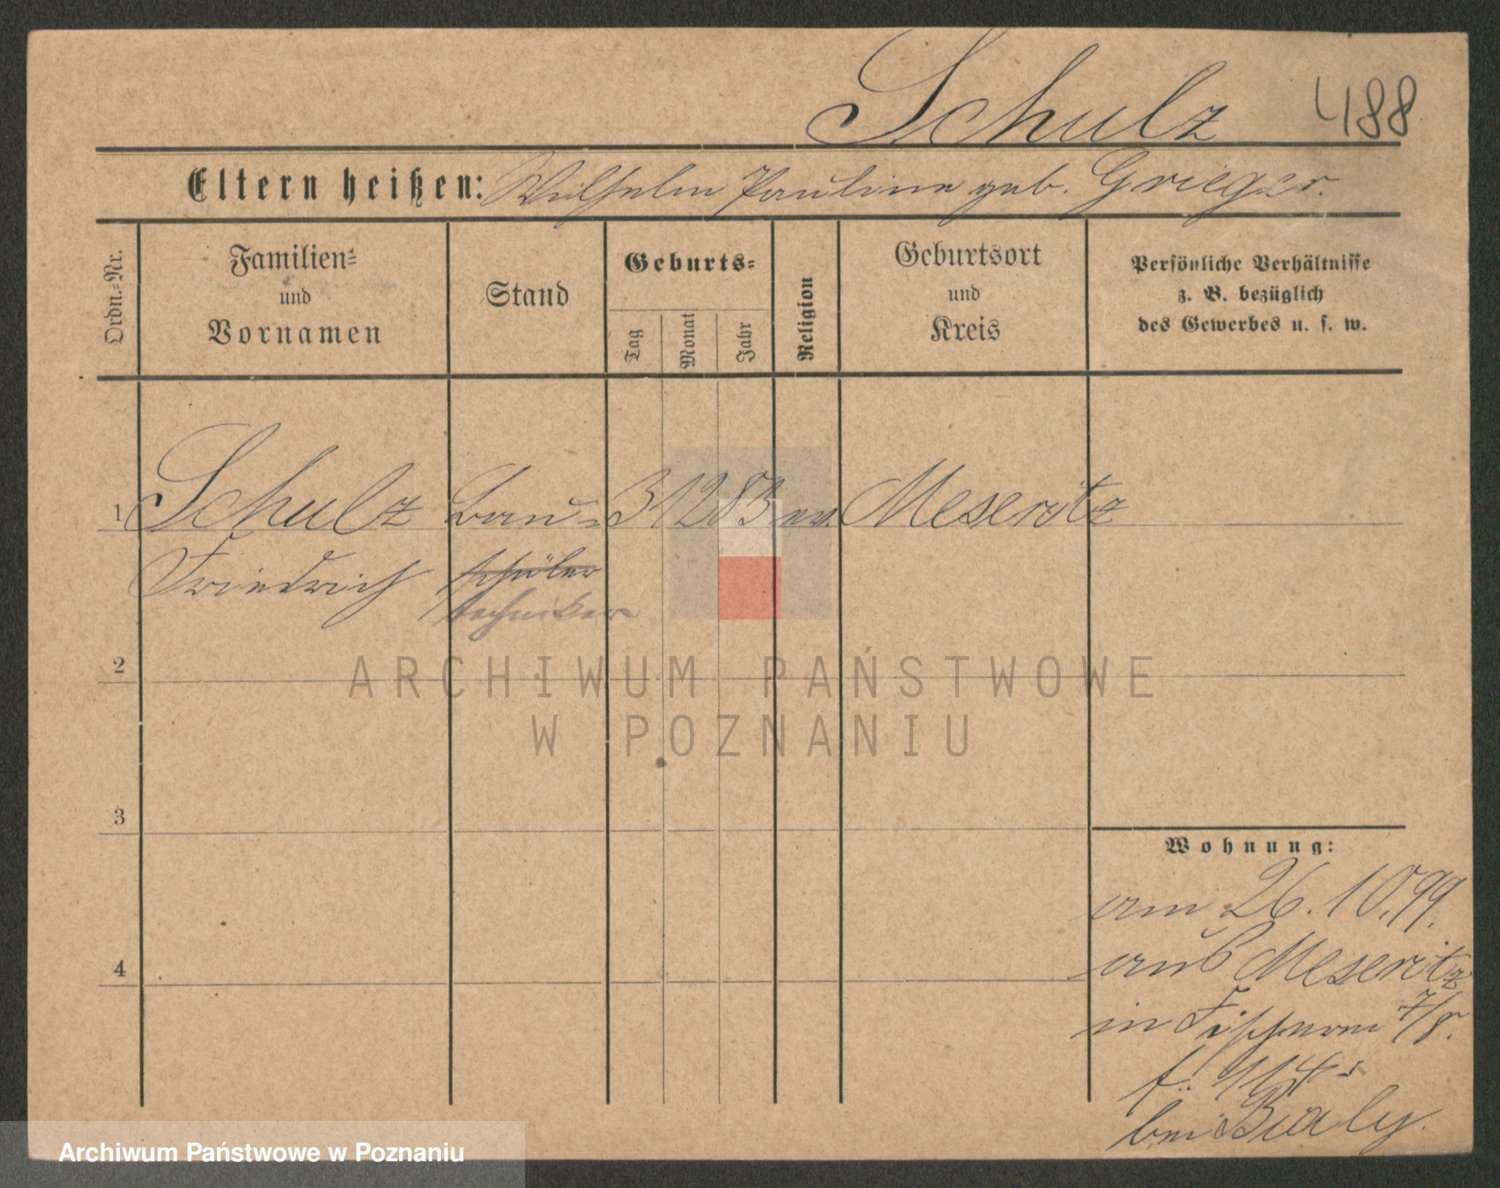 Schulz 488
Eltern heißen: Wilhelm Pauline geb. Grieger.
Ordn.-Nr.
Familien-
und
Vornamen
Stand
Geburts-
Tag
Monat
Jahr
Religion
Geburtsort
und
Kreis
Persönliche Verhältnisse
z. B. bezüglich
des Gewerbes u. s. w.
1 Schulz Bau- 3 12 83 ev. Meseritz
Friedrich schüler
techniker
2
ARCHIWUM PAŃSTWOWE
W POZNANIU
3
4
Wohnung:
am 26.10.99.
aus Meseritz
in Fischerei 7/8.
bei Bialy.
Archiwum Państwowe w Poznaniu